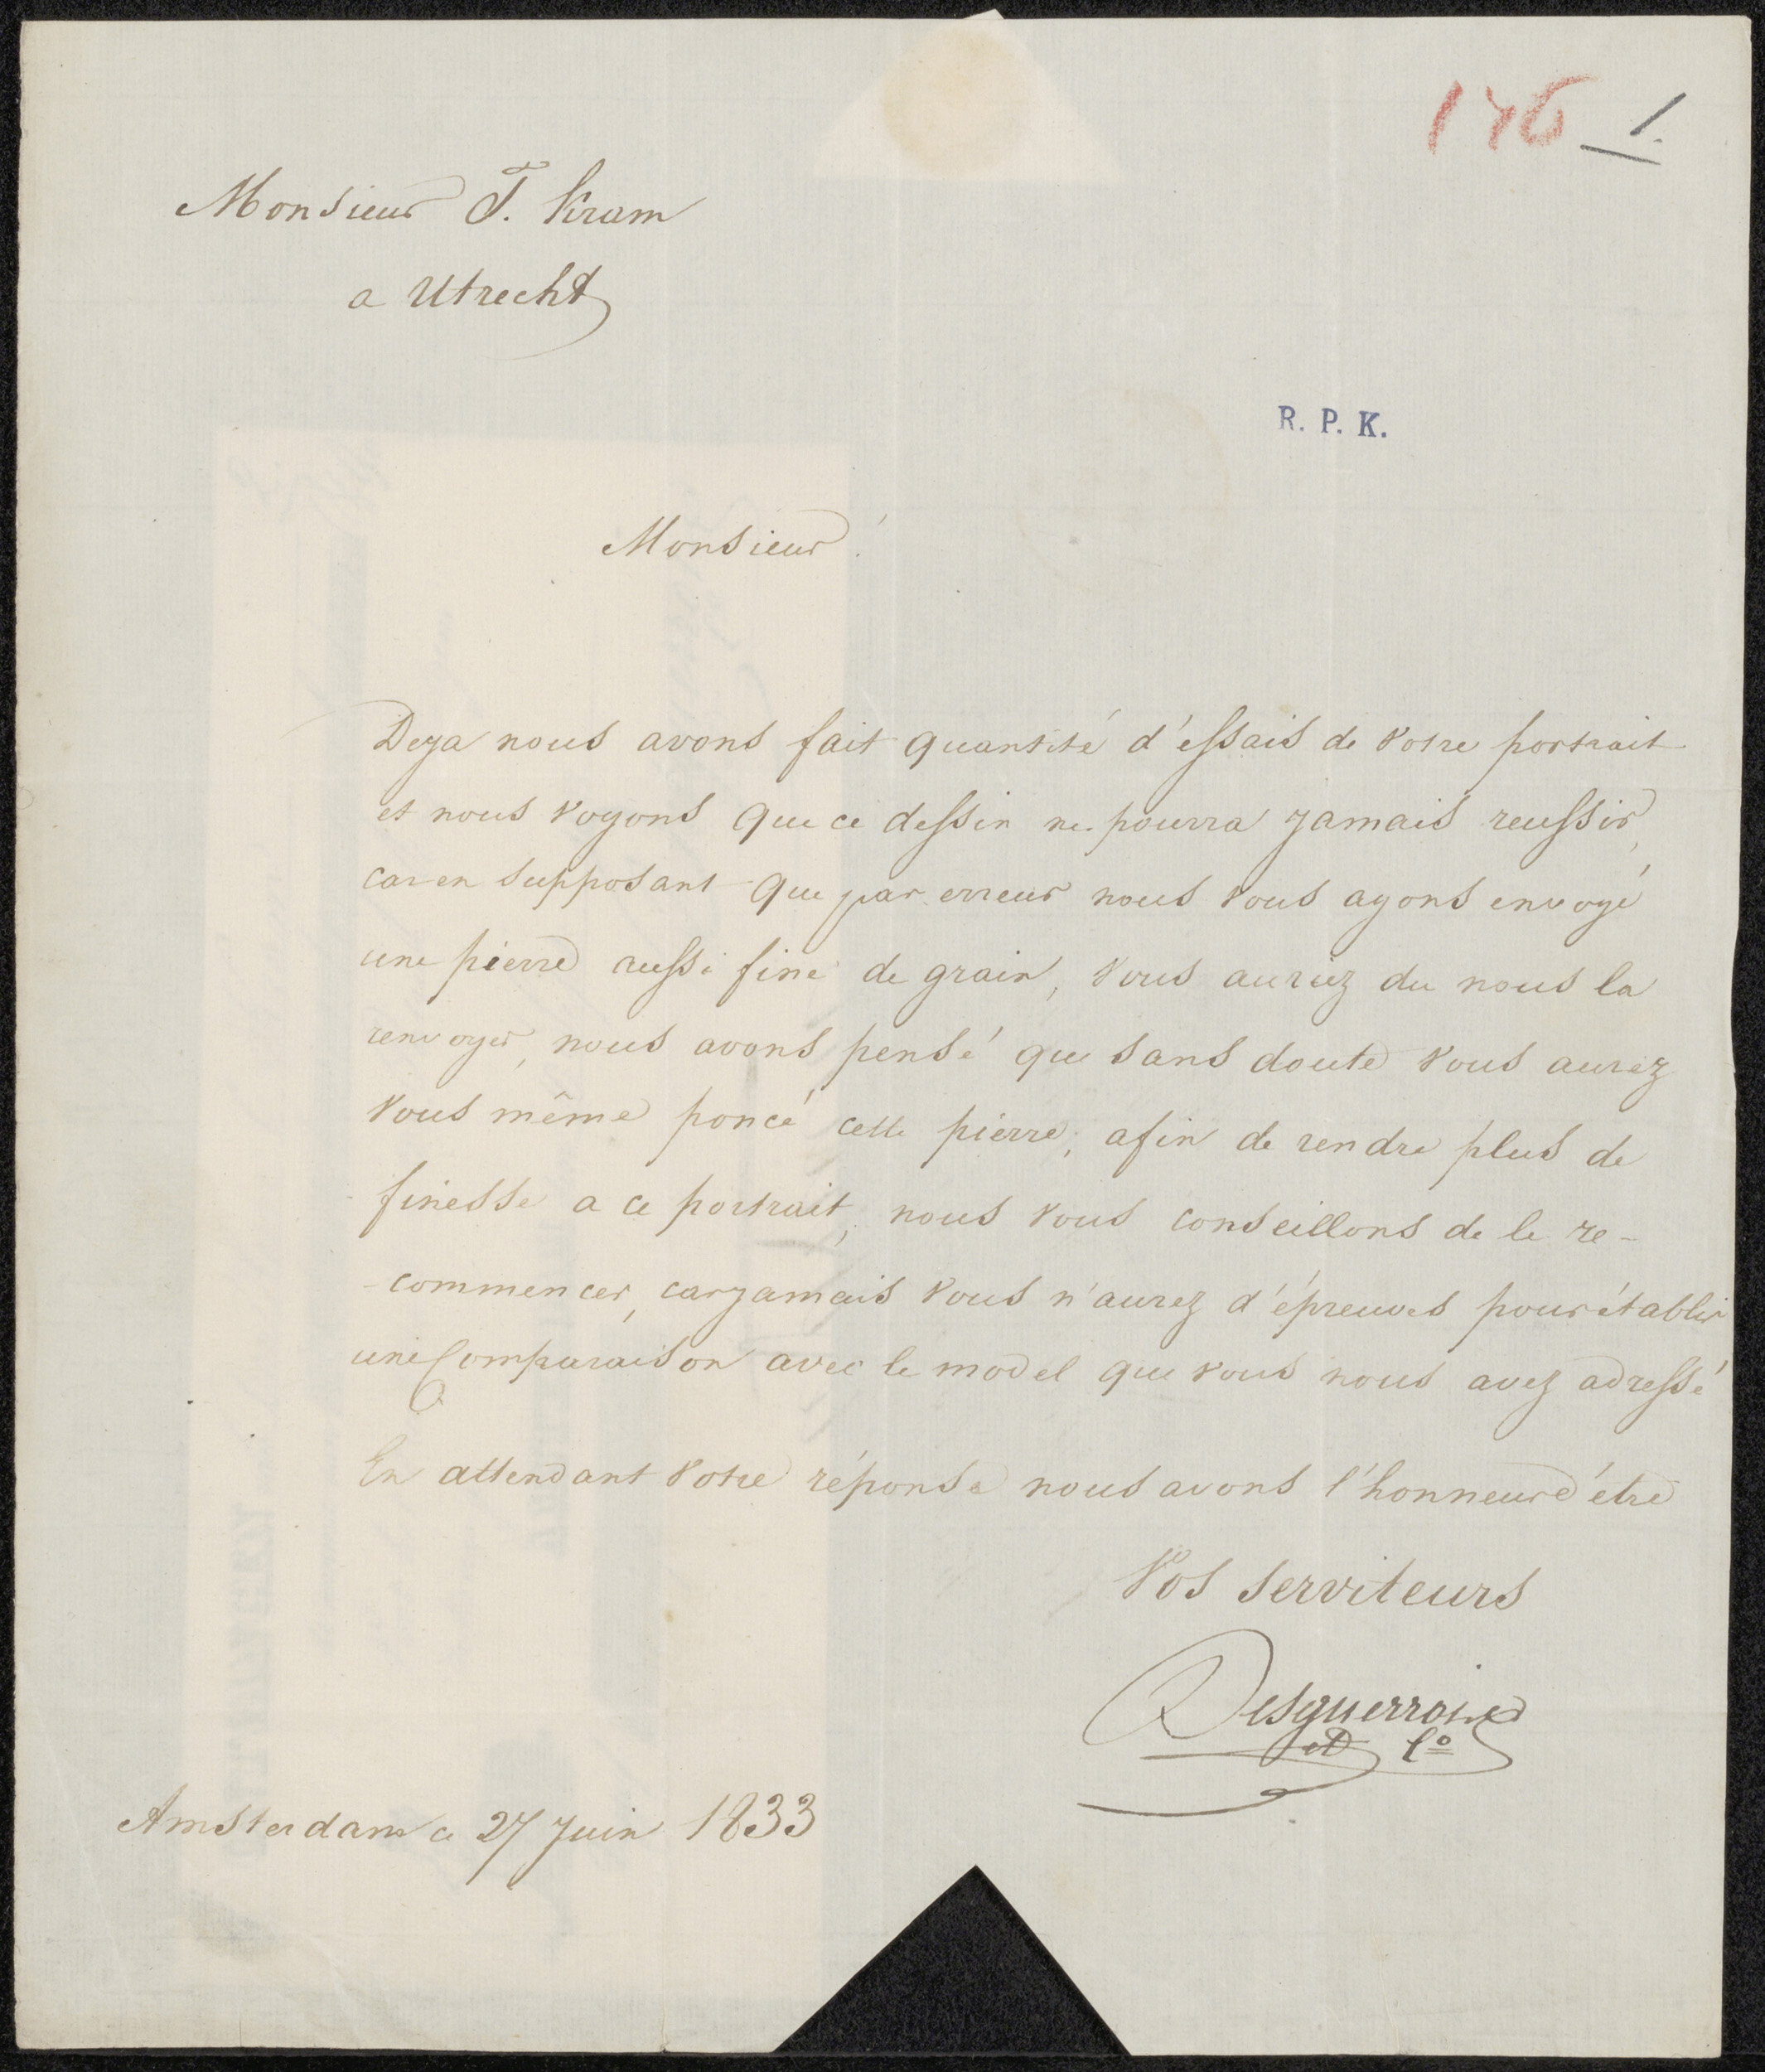 176 1.
Monsieur T. Kram
a Utrecht
R. P. K.
Monsieur!
Deja nous avons fait quantité d'éssais de votre portrait
et nous voyons que ce dessin ne pourra jamais reussir,
car en supposant que par erreur nous vous ayons envoyé
une pierre aussi fine de grain, vous auriez du nous la
renvoyer, nous avons pensé que sans doute vous aurez
vous même poncé cette pierre, afin de rendre plus de
finesse a ce portrait, nous vous conseillons de le re-
-commencer, car jamais vous n'aurez d'épreuves pour établir
une Comparaison avec le model que vous nous avez adressé
En attendant votre réponse nous avons l'honneur d'étre
Vos serviteurs
Desguerrois
et Co
Amsterdam ce 27 Juin 1833